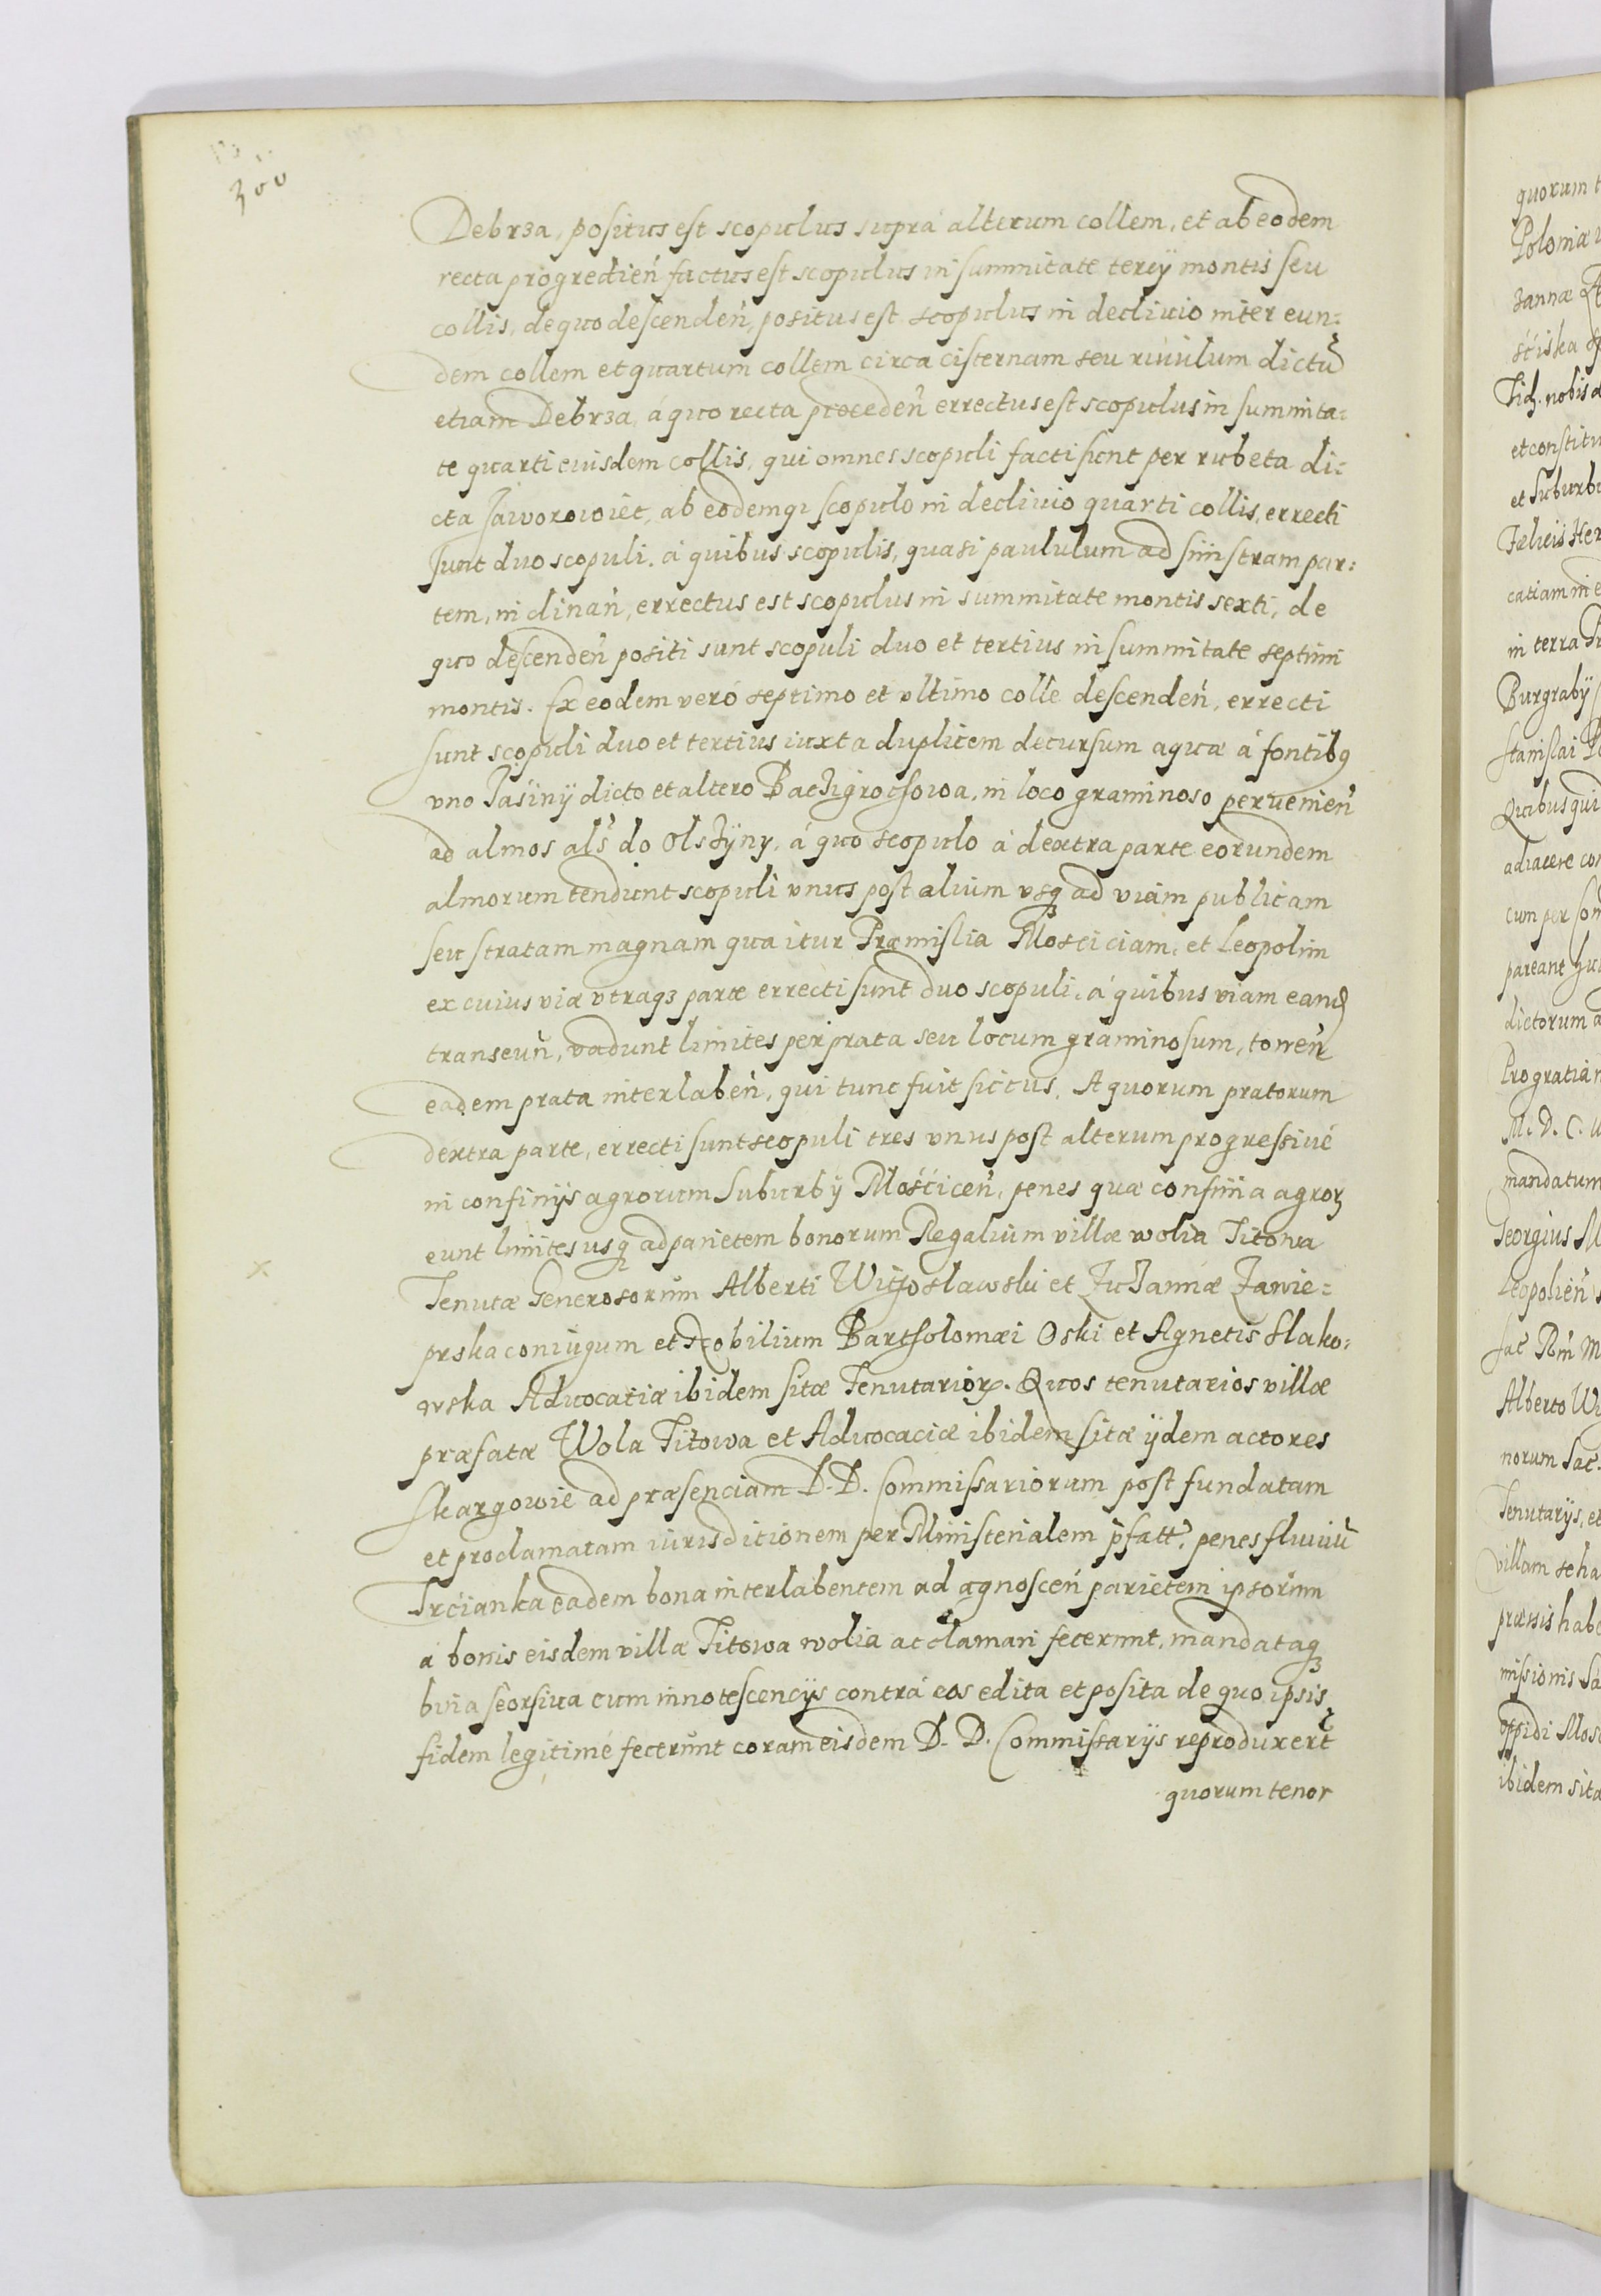 300
Debrza, positus est scopulus supra alterum collem, et ab eodem
recta progredień factus est scopulus in summitate tercÿ montis seu
collis, de quo descendeń, positus est scopulus in declivio inter eun=
dem collem et quartum collem circa cisternam seu rivulum dictũ
etiam Debrza, á quo recta procedeń errectus est scopulus in summita=
te quarti eiusdem collis, qui omnes scopuli facti sunt per rubeta di=
cta Jaworowiec, ab eodemq; scopulo in declivio quarti collis, errecti
sunt duo scopuli. á quibus scopulis, quasi paululum ad sinistram par=
tem, inclinań, errectus est scopulus in summitate montis sexti, de
quo descendeń positi sunt scopuli duo et tertius in summitate septimi
montis. Ex eodem veró septimo et vltimo colle descendeń, errecti
sunt scopuli duo et tertius iuxta duplicem decursum aquæ á fontibꝰ
vno Jasiny dicto et altero in loco graminoso pervenień
ad almos als do Olszÿny, á quo scopulo á dextra parte eorundem
almorum tendunt scopuli vnus post alium vsq; ad viam publicam
seu stratam magnam qua itur Præmislia Mosciciam, et Leopolim
ex cuius viæ vtraqȝ parte errecti sunt duo scopuli, á quibus viam eand
transeuń, vadunt limites per prata seu locum graminosum, torreń
eadem prata interlabeń, qui tunc fuit siccus. A quorum pratorum
dextra parte, errecti sunt scopuli tres vnus post alterum progressivé
in confinÿs agrorum Suburbÿ Mościceń, penes quæ confinia agroꝝ
eunt limites usq; ad parietem bonorum Regalium villæ wolia Titowa
Tenutæ Generosorum Alberti et Zuzannæ Zawie=
prska coniugum et Nobilium Bartholomæi Oski et Agnetis Slako=
wska Advocatiæ ibidem sitæ Tenutarioꝝ. Quos tenutarios villæ
præfatæ Wola Titowa et Advocaciæ ibidem sitæ ÿdem actores
Skargowie ad præsenciam D. D. Commissariorum post fundatam
et proclamatam iurisditionem per Ministerialem pfatt, penes fluviũ
Trcianka eadem bona interlabentem ad agnosceń parietem ipsorum
á bonis eisdem villæ Titowa wolia acclamari fecerunt, mandataq;
bina seorsiva cum innotescencÿs contrá eos edita et posita de quo ipsis
fidem legitimé fecerunt coram eisdem D. D. Commissarÿs reproduxert
quorum tenor